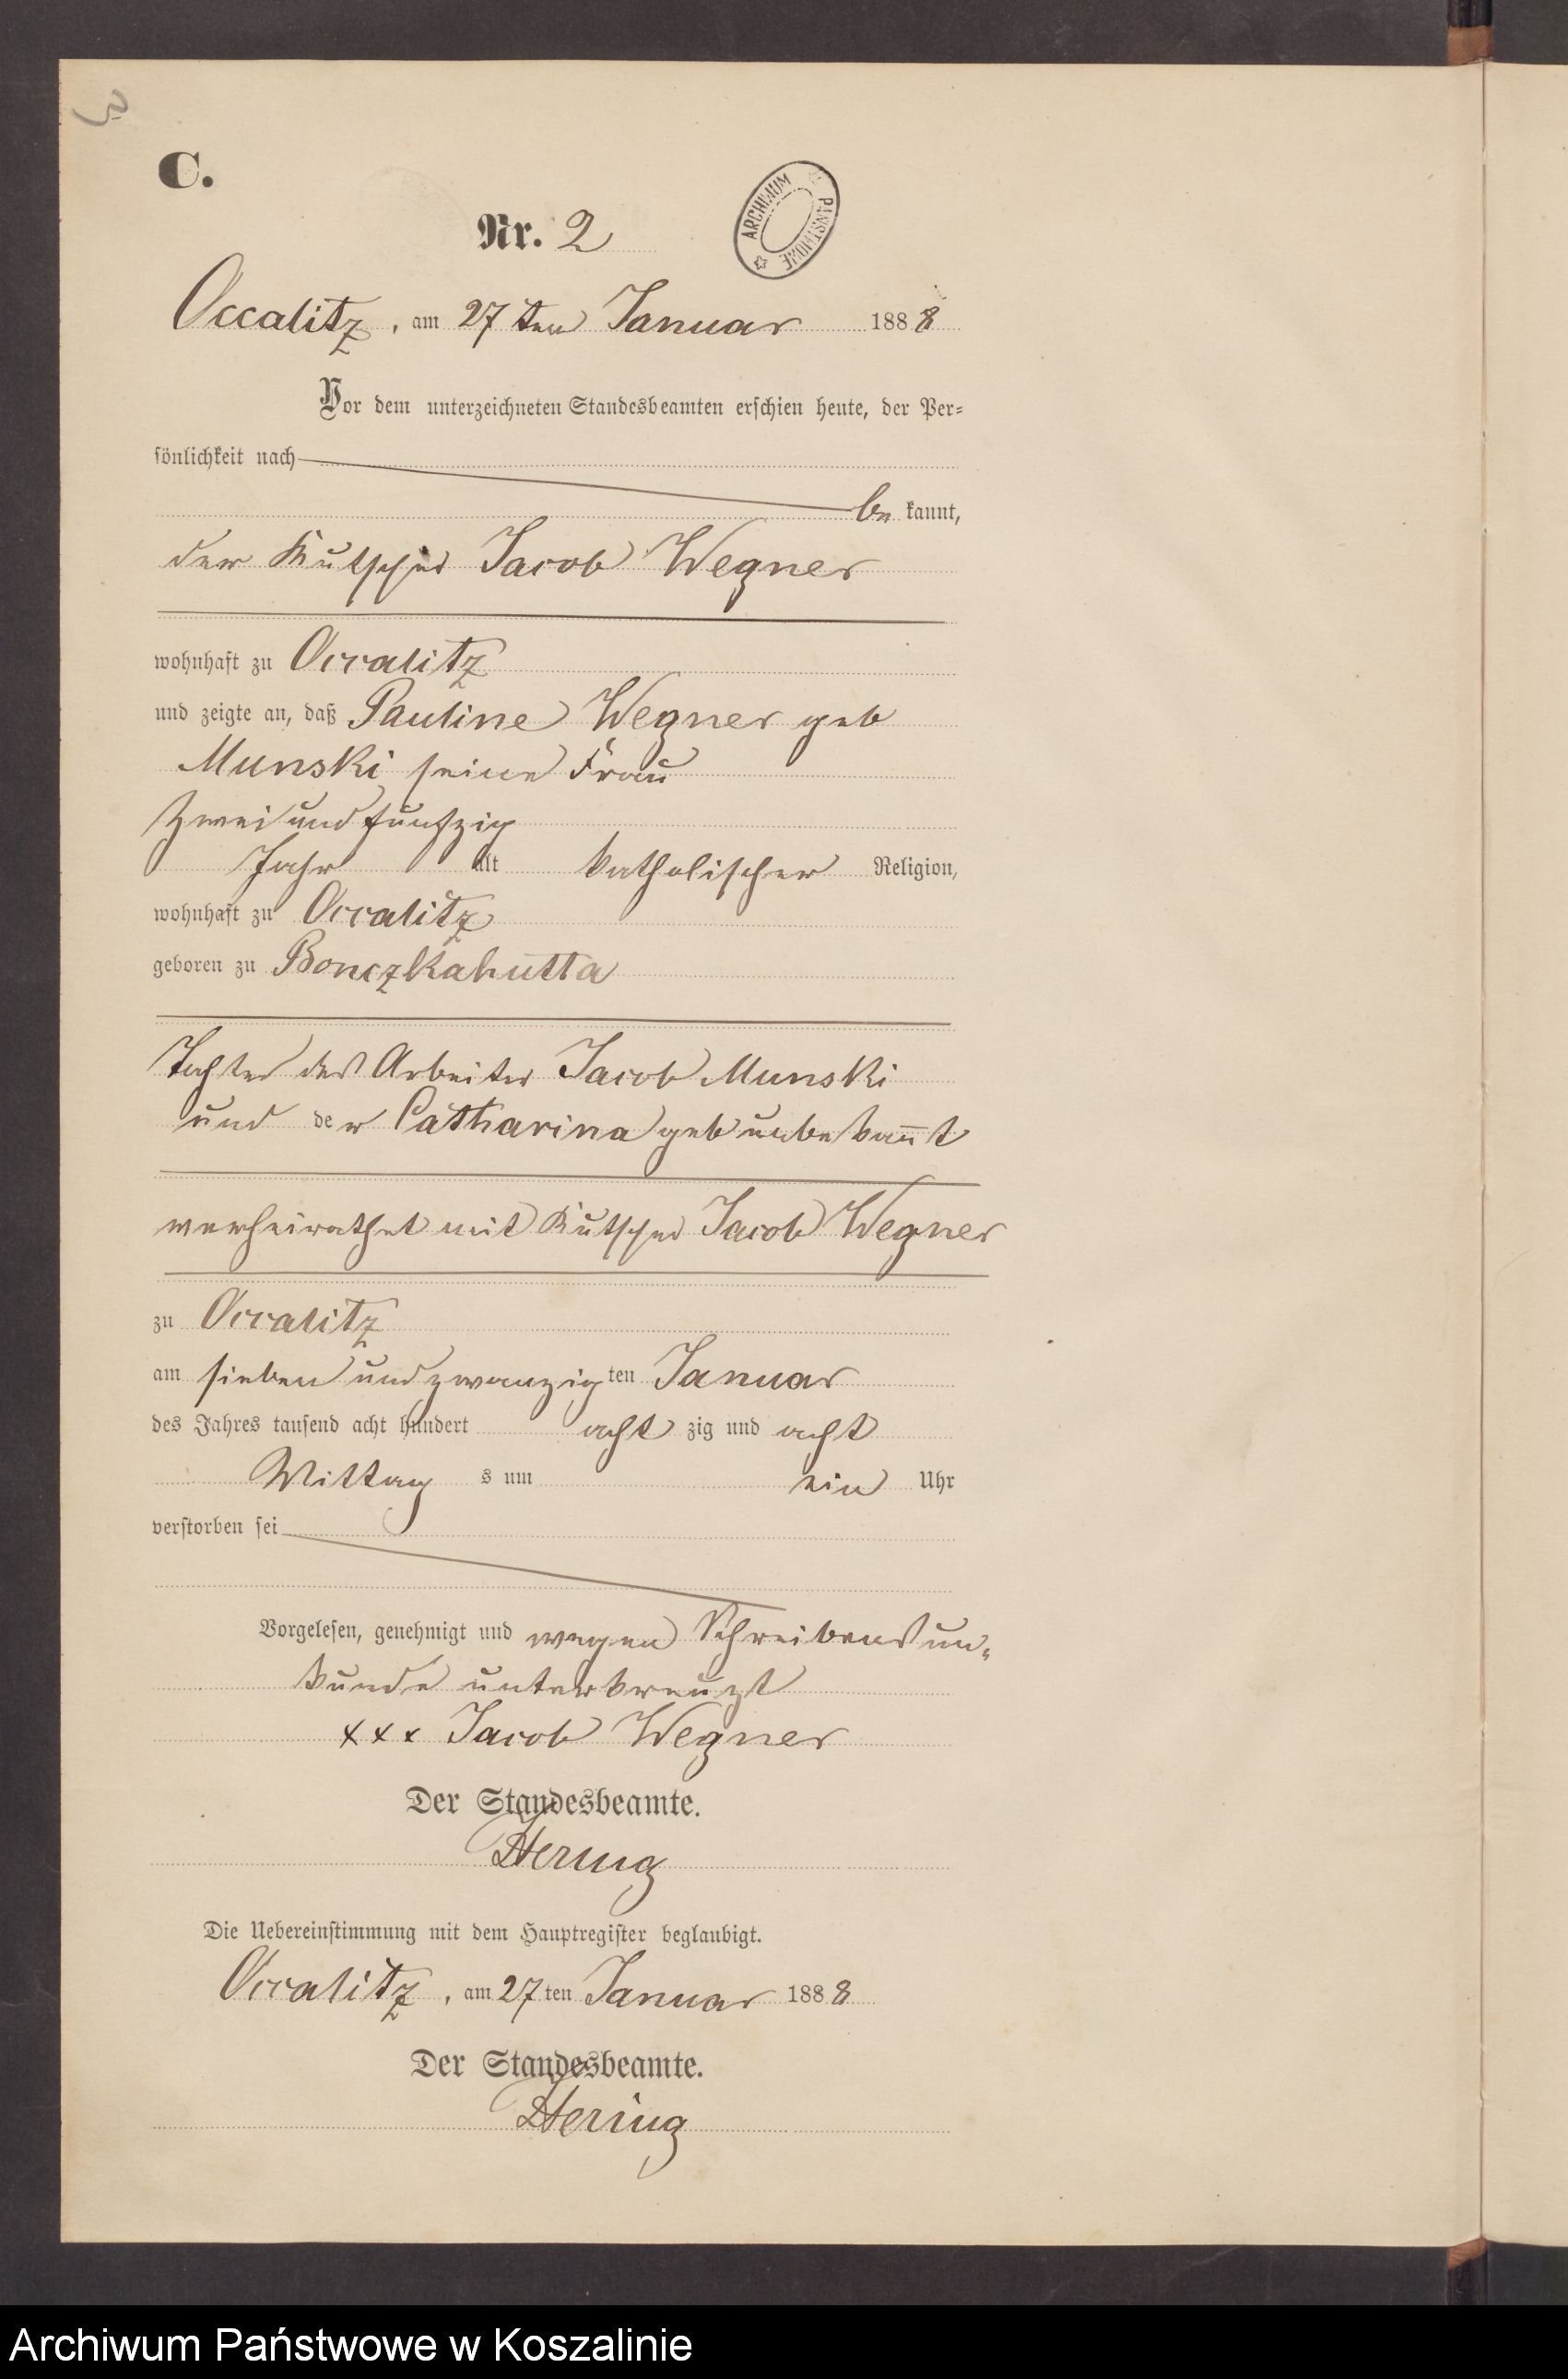 3
C.
Nr. 2
ARCHIWUM PAŃSTWOWE
Occalitz, am 27 ten Januar 1888
Vor dem unterzeichneten Standesbeamten erschien heute, der Per=
sönlichkeit nach
be kannt,
der Kutscher Jacob Wegner
wohnhaft zu Occalitz
und zeigte an, daß Pauline Wegner geb
Munski seine Frau
zwei und funfzig
Jahr alt katholischer Religion,
wohnhaft zu Occalitz
geboren zu Bonczkahutta
Tochter des Arbeiter Jacob Munski
und der Catharina geb unbekan̅t
verheirathet mit Kutscher Jacob Wegner
zu Occalitz
am sieben und zwanzig ten Januar
des Jahres tausend acht hundert acht zig und acht
Mittag s um ein Uhr
verstorben sei
Vorgelesen, genehmigt und wegen Schreibens un=
kunde unterkreuzt
xxx Jacob Wegner
Der Standesbeamte.
Hering
Die Uebereinstimmung mit dem Hauptregister beglaubigt.
Occalitz, am 27 ten Januar 1888
Der Standesbeamte.
Hering
Archiwum Państwowe w Koszalinie